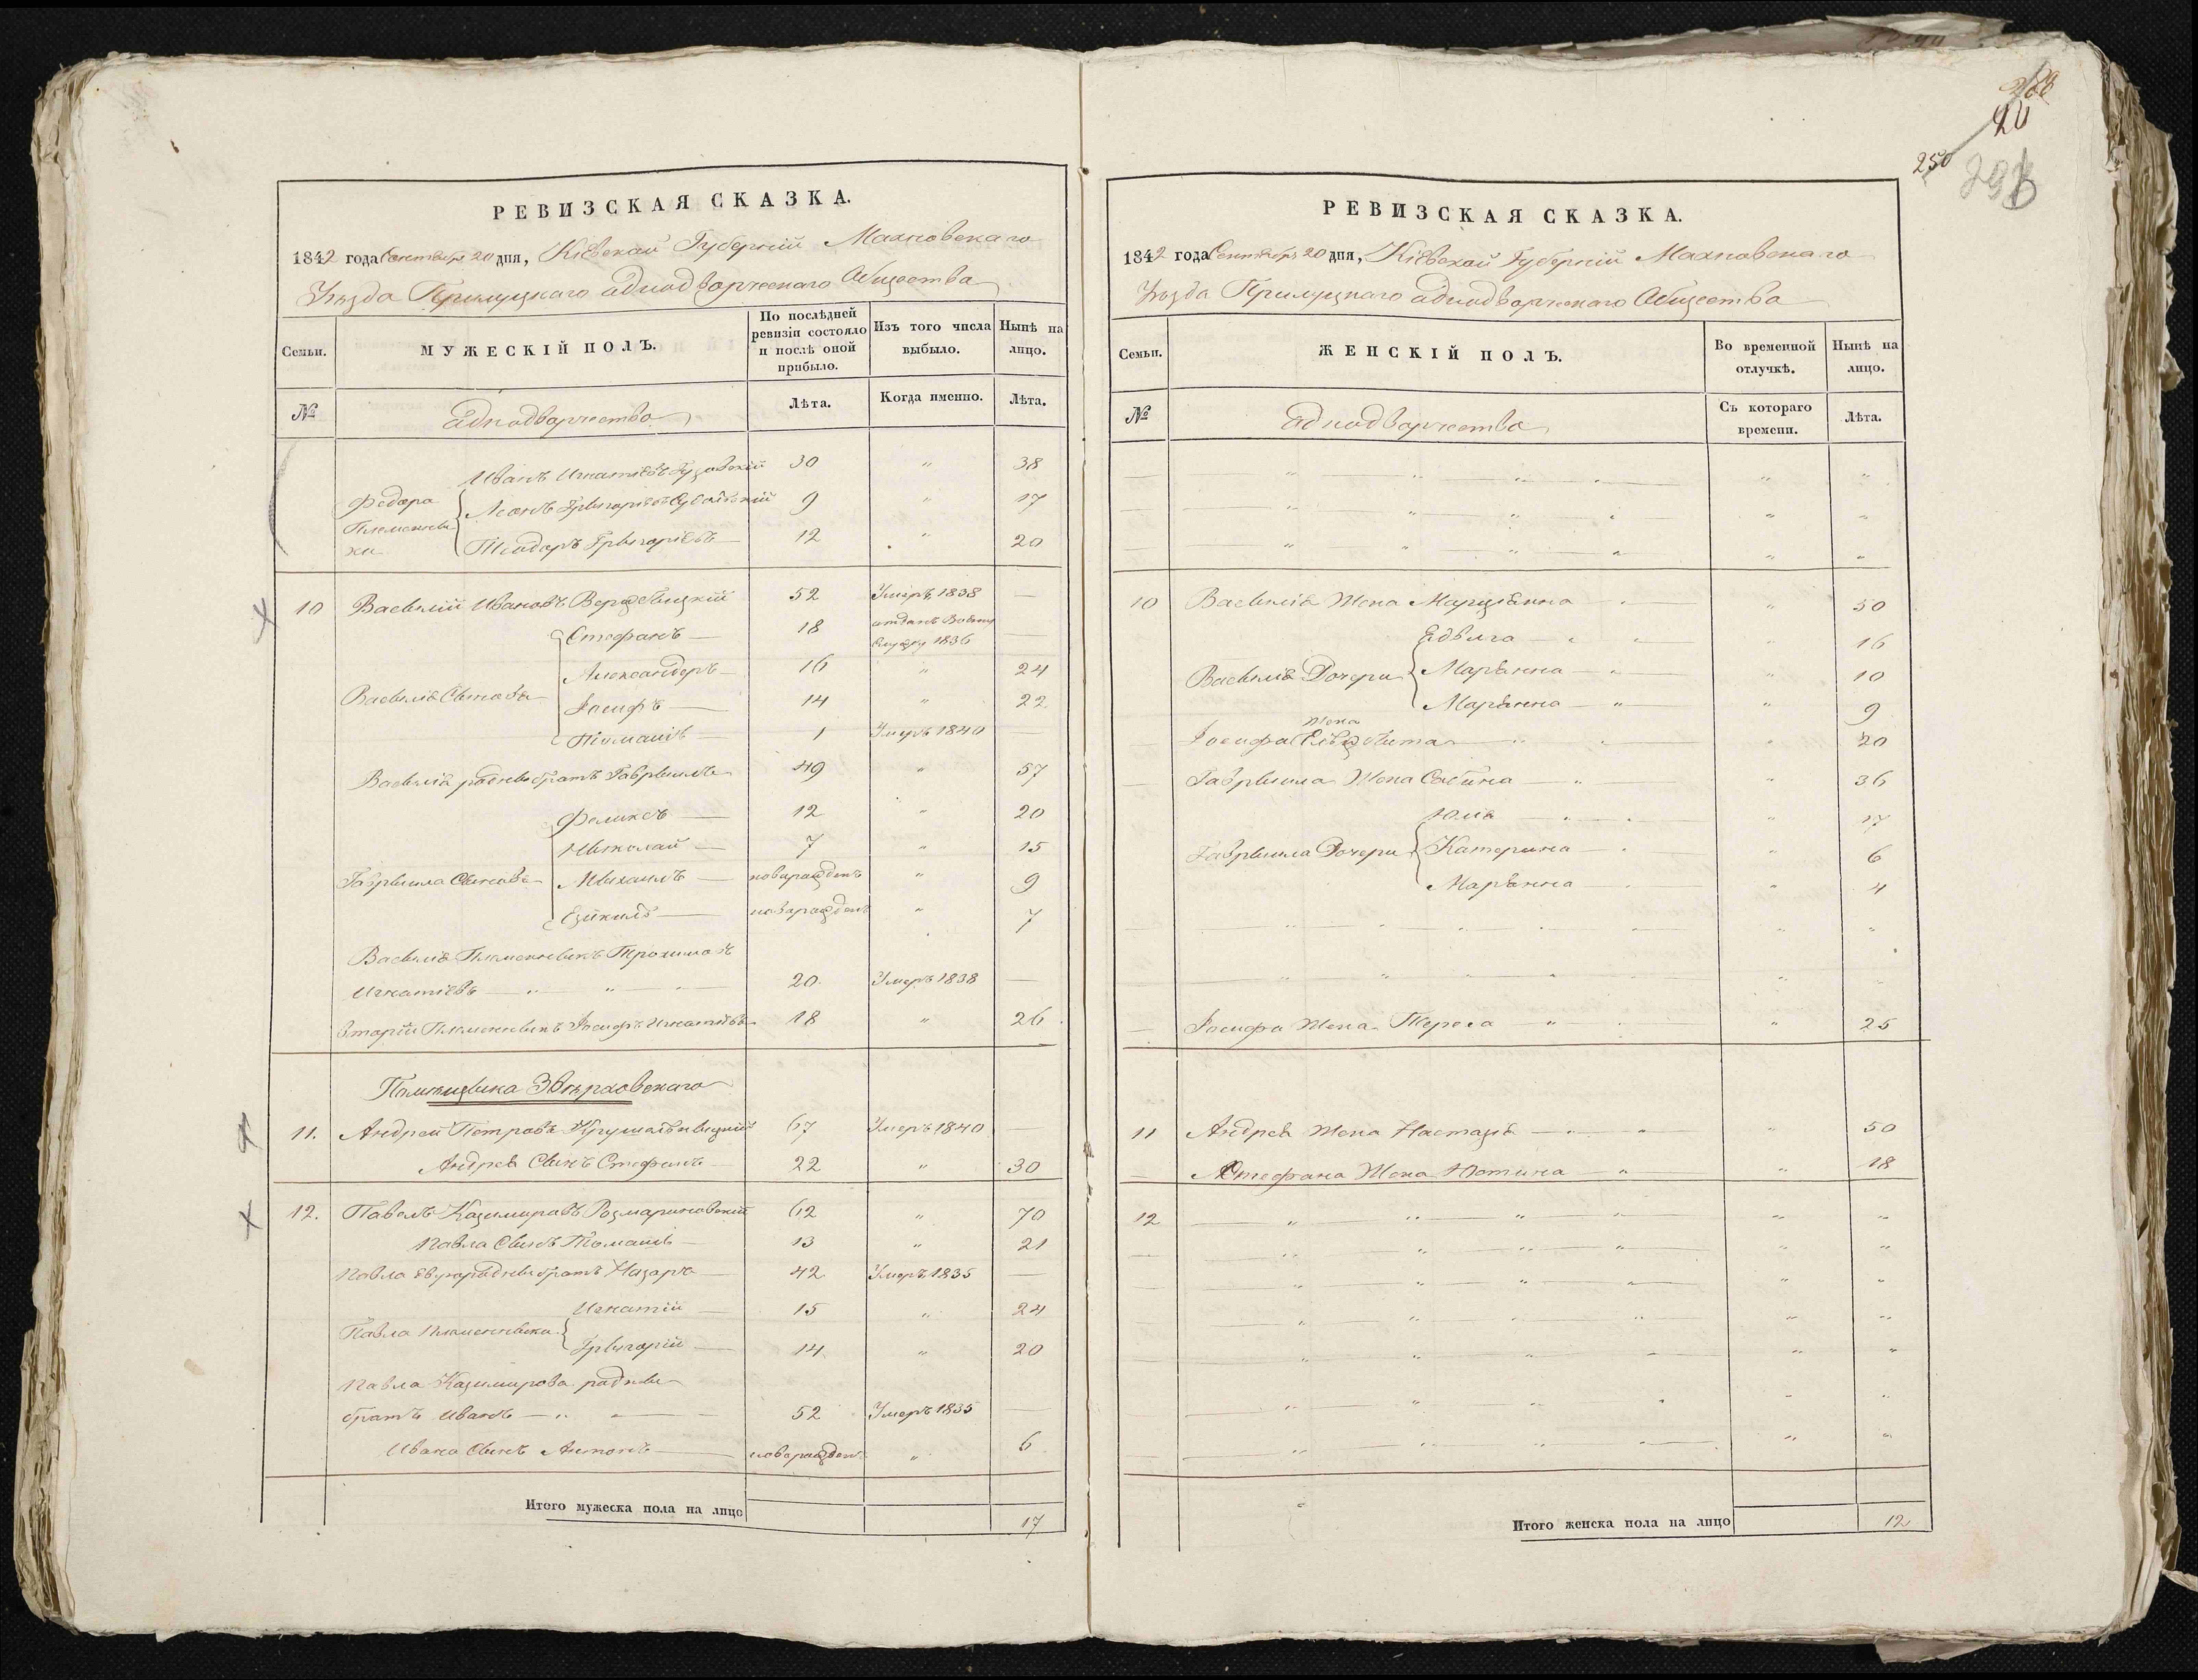 250
20
РЕВИЗСКАЯ СКАЗКА.
1842 года Сентября 20 дня, Кіевской Губерніи Махновскаго
Уѣзда Прилуцкаго однодворческаго Общества
Семьи.
МУЖЕСКІЙ ПОЛЪ.
По послѣдней ревизіи состояло и послѣ оной прибыло.
Изъ того числа выбыло.
Нынѣ на лицо.
№
Однодворчество
Лѣта.
Когда именно.
Лѣта.
Иванъ Игнатіевъ 30 " 38
Федора Племенники
Леонъ Грыгоріевъ 9 " 17
Тіодоръ Грыгоріевъ 12 " 20
10 Васылій Ивановъ 52 Умеръ 1838 —
Васыліа Сынова
Стефанъ — 18 отданъ Воены Службу 1836 —
Александеръ — 16 " 24
Іосифъ — 14 " 22
Томашъ — 1 Умеръ 1840
Васыліа родны братъ Гаврыилъ 49 " 57
Гаврыила Сынова
Феликсъ — 12 " 20
Ныколай — 7 " 15
Мыхаилъ — новорожденъ " 9
новорожденъ " 7
Васыліа Племенныкъ
Игнатіевъ — " " " — 20 Умеръ 1838 —
Вторій Племенныкъ Іосифъ Игнатіевъ 18 " 26
Помѣщика Звѣрховскаго
11. Андрей Петровъ Крушельныцкій 67 Умеръ 1840 —
Андрея Сынъ Стефанъ 22 " 30
12. Павелъ Казимировъ Розмариновскій 62 " 70
Павла Сынъ Томашъ — 13 " 21
Павла двуродны братъ Назаръ 42 Умеръ 1835 —
Павла Племенныки
Игнатій — 15 " 24
Грыгорій — 14 " 20
Павла Казимирова родны
братъ Иванъ — " " — 52 Умеръ 1835 —
Ивана Сынъ Антонъ — новорожден " 6
Итого мужеска пола на лицо
17
РЕВИЗСКАЯ СКАЗКА.
1842 года Сентября 20 дня, Кіевской Губерніи Махновскаго
Уѣзда Прилуцкаго однодворческаго Общества
Семьи.
ЖЕНСКІЙ ПОЛЪ.
Во временной отлучкѣ.
Нынѣ на лицо.
№
Однодворчество
Съ котораго времени.
Лѣта.
10 Васыліа Жена Марціанна — " 50
Васыліа Дочери
Едвига — " 16
Маріанна — " 10
Маріанна — " 9
Іосифа Жена " 20
Гаврыила Жена Сабина — " 36
Гаврыила Дочери
Юліа — " 17
Катерина — " 6
Маріанна — " 4
Іосифа Жена Тереса — " 25
11 Андрея Жена Настазія — " 50
Стефана Жена Юстина — " 18
12
Итого женска пола на лицо
12